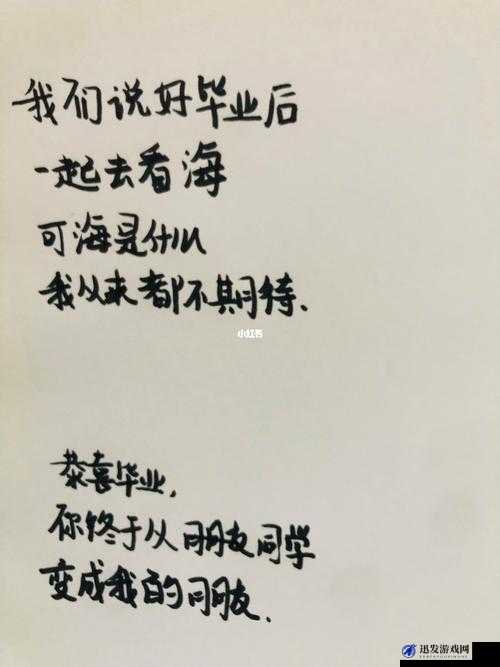 我们说好毕业后
一起去看海
可海是什么
我从来都不期待.
小红书
恭喜毕业,
你终于从朋友同学
变成我的朋友.
迅发游戏网